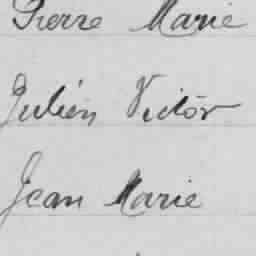 Pierre Marie
Julien Victor
Jean Marie